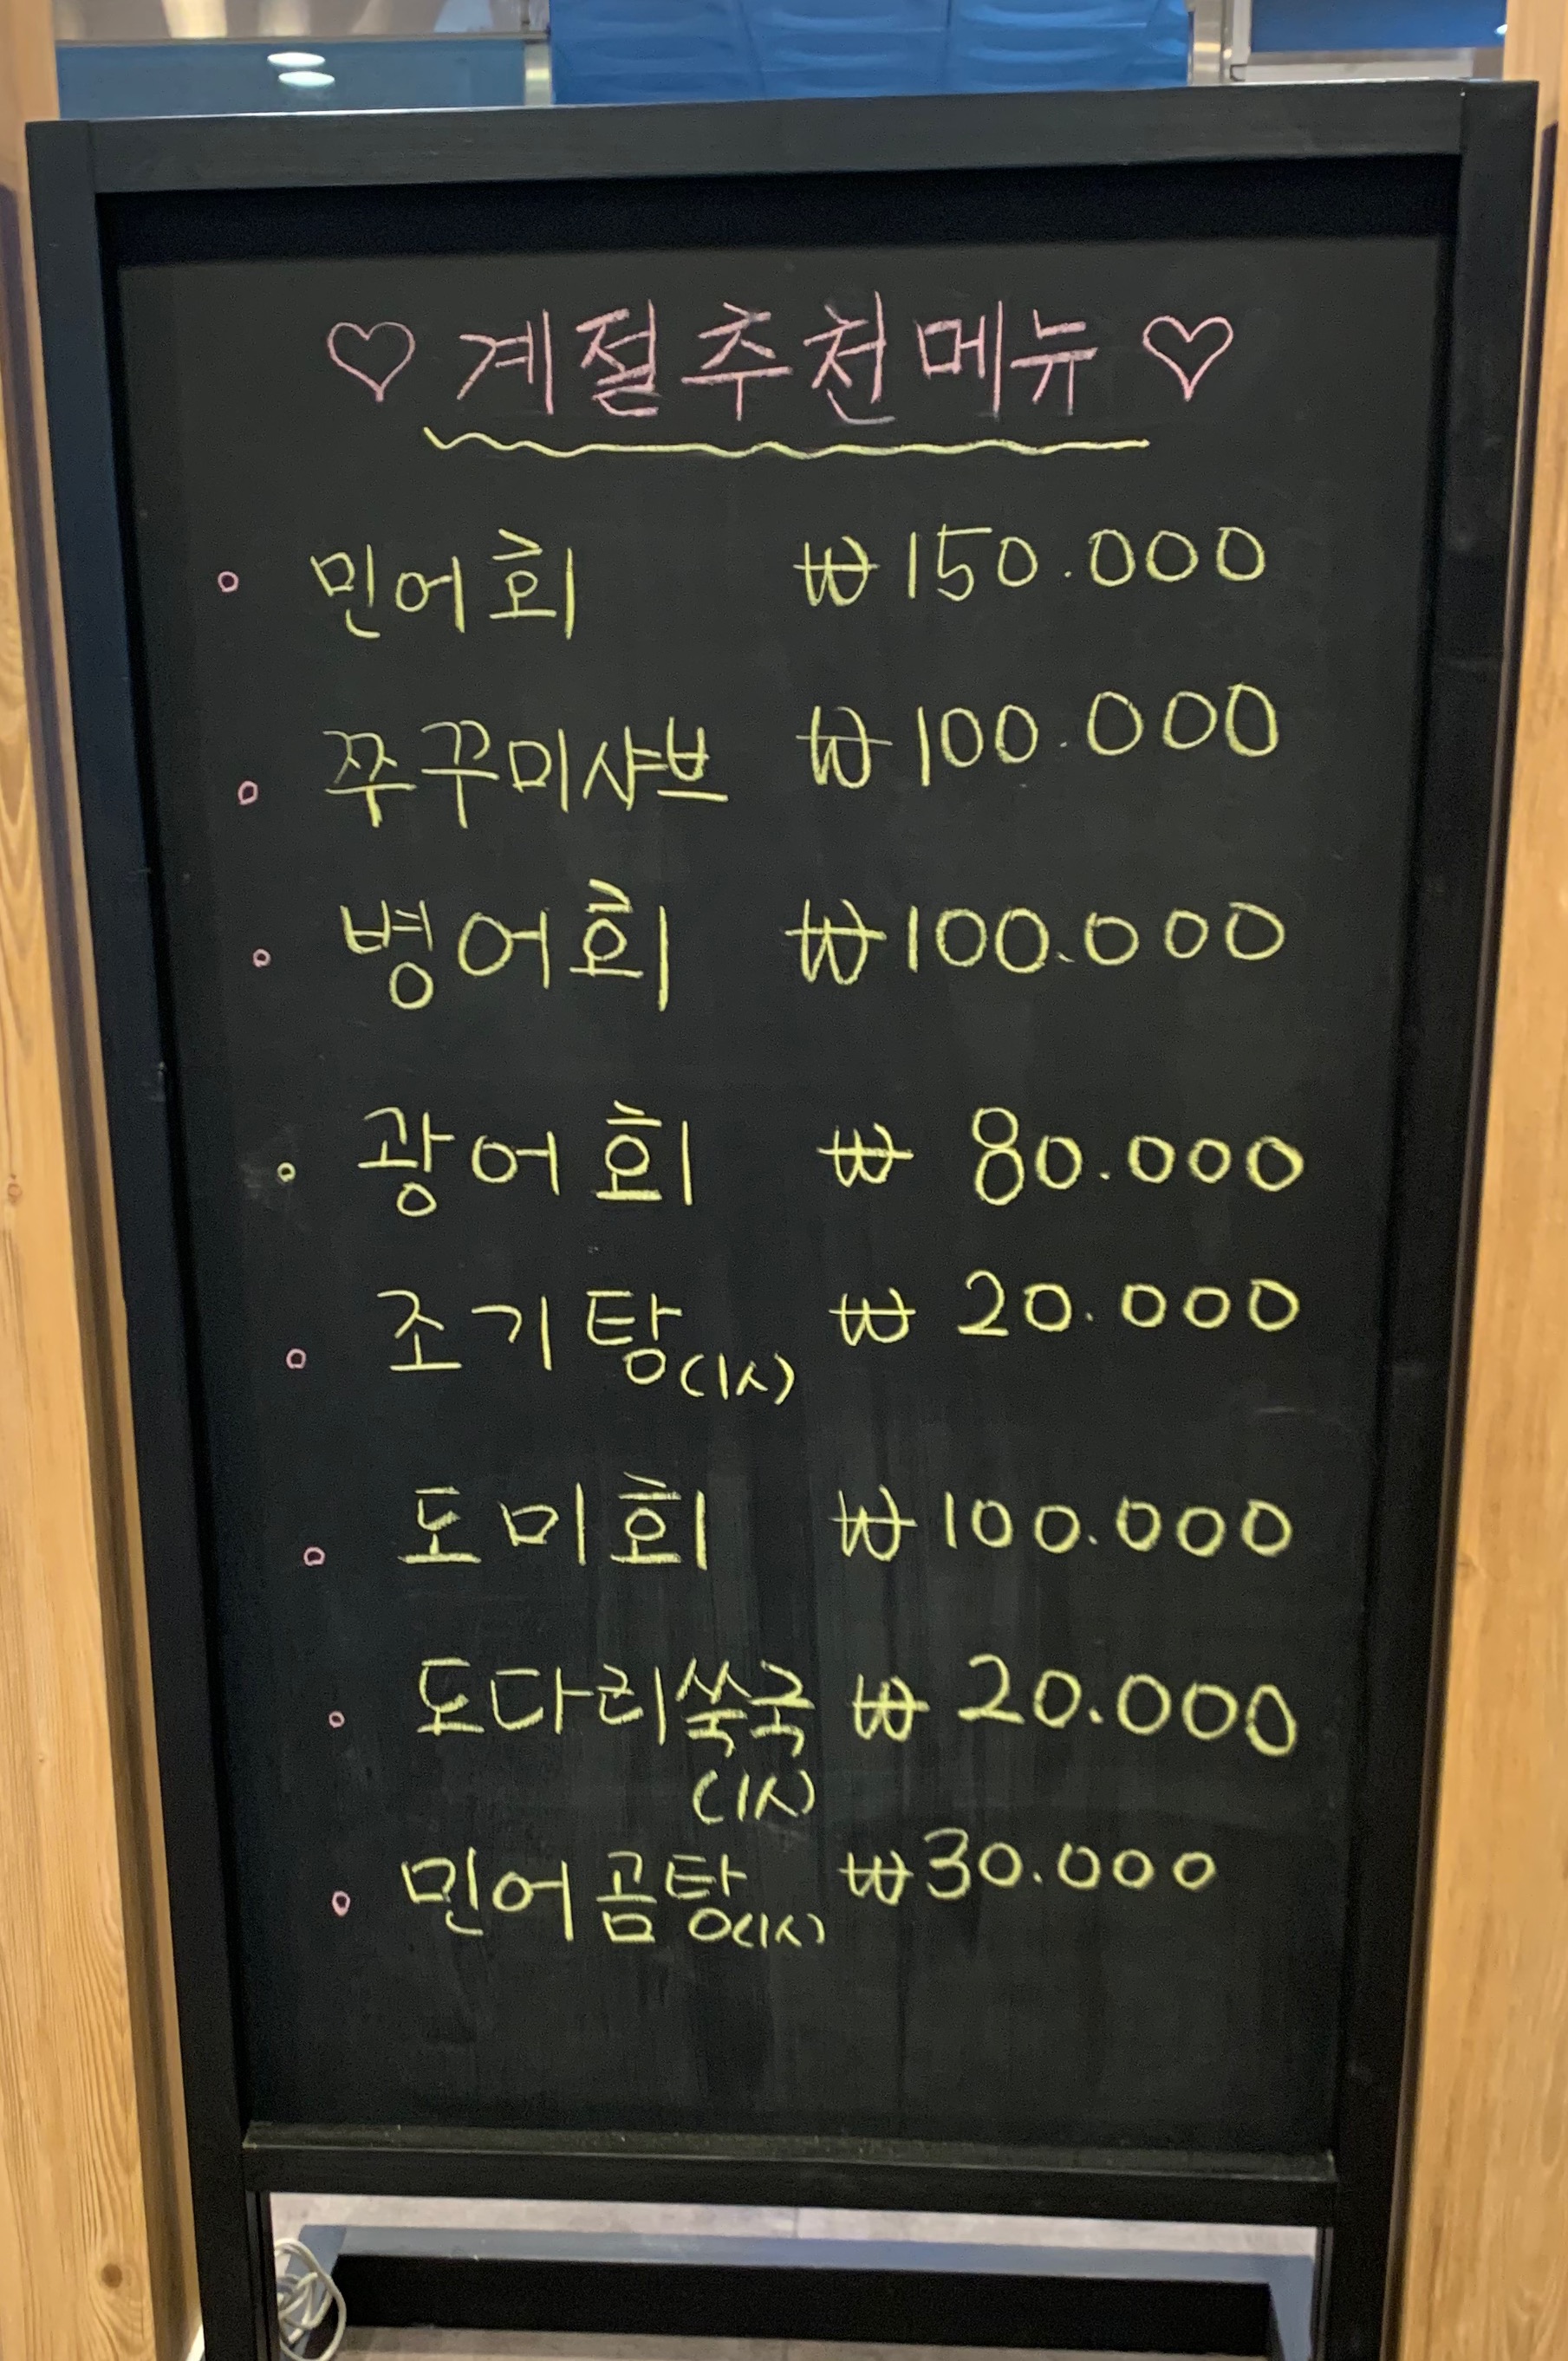 ♡ 계절추천메뉴 ♡
민어회 ₩150.000
쭈꾸미샤브 ₩100.000
병어회 ₩100.000
광어회 ₩ 80.000
조기탕(1人) ₩ 20.000
도미회 ₩100.000
도다리쑥국 ₩ 20.000
(1人)
민어곰탕(1人) ₩30.000